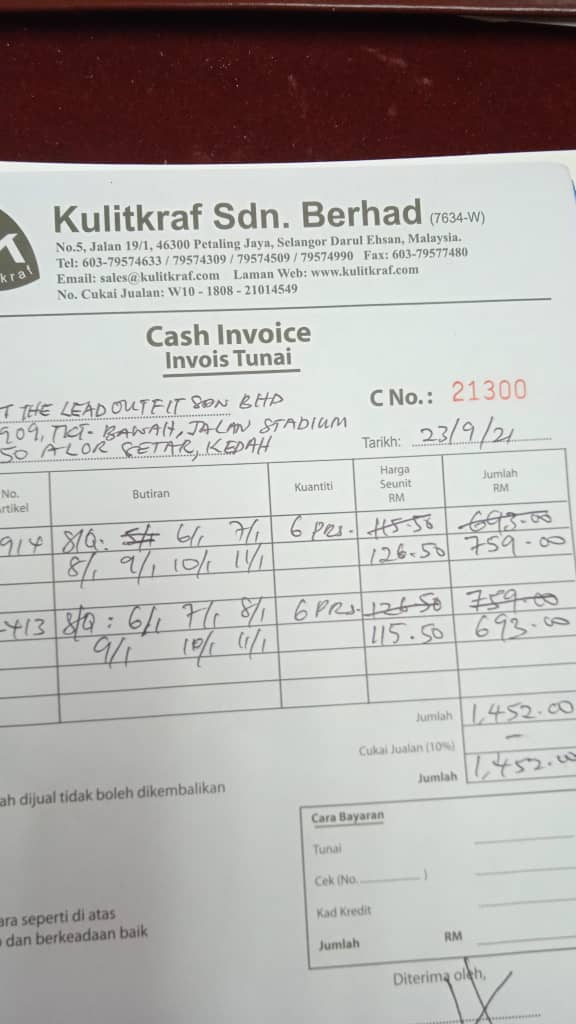 kraf
Kulitkraf Sdn. Berhad (7634-W)
No.5, Jalan 19/1, 46300 Petaling Jaya, Selangor Darul Ehsan, Malaysia.
Tel: 603-79574633 / 79574309 / 79574509 / 79574990 Fax: 603-79577480
Email: sales@kulitkraf.com Laman Web: www.kulitkraf.com
No. Cukai Jualan: W10 - 1808 - 21014549
Cash Invoice
Invois Tunai
T THE LEAD OUTFIT SDN BHD
C No.: 21300
909, TKT. BAWAH, JALAN STADIUM
50 ALOR SETAR, KEDAH
Tarikh: 23/9/21
No. rtikel Butiran Kuantiti Harga Seunit RM Jumlah RM
914 S/Q: 5/1 6/1 7/1 6 PRS. 115.50 693.00
8/1 9/1 10/1 11/1 126.50 759.00
-413 S/Q: 6/1 7/1 8/1 6 PRS. 126.50 759.00
9/1 10/1 11/1 115.50 693.00
Jumlah 1,452.00
Cukai Jualan (10%) –
Jumlah 1,452.00
ah dijual tidak boleh dikembalikan
Cara Bayaran
Tunai
Cek (No. )
Kad Kredit
Jumlah RM
ara seperti di atas
dan berkeadaan baik
Diterima oleh,